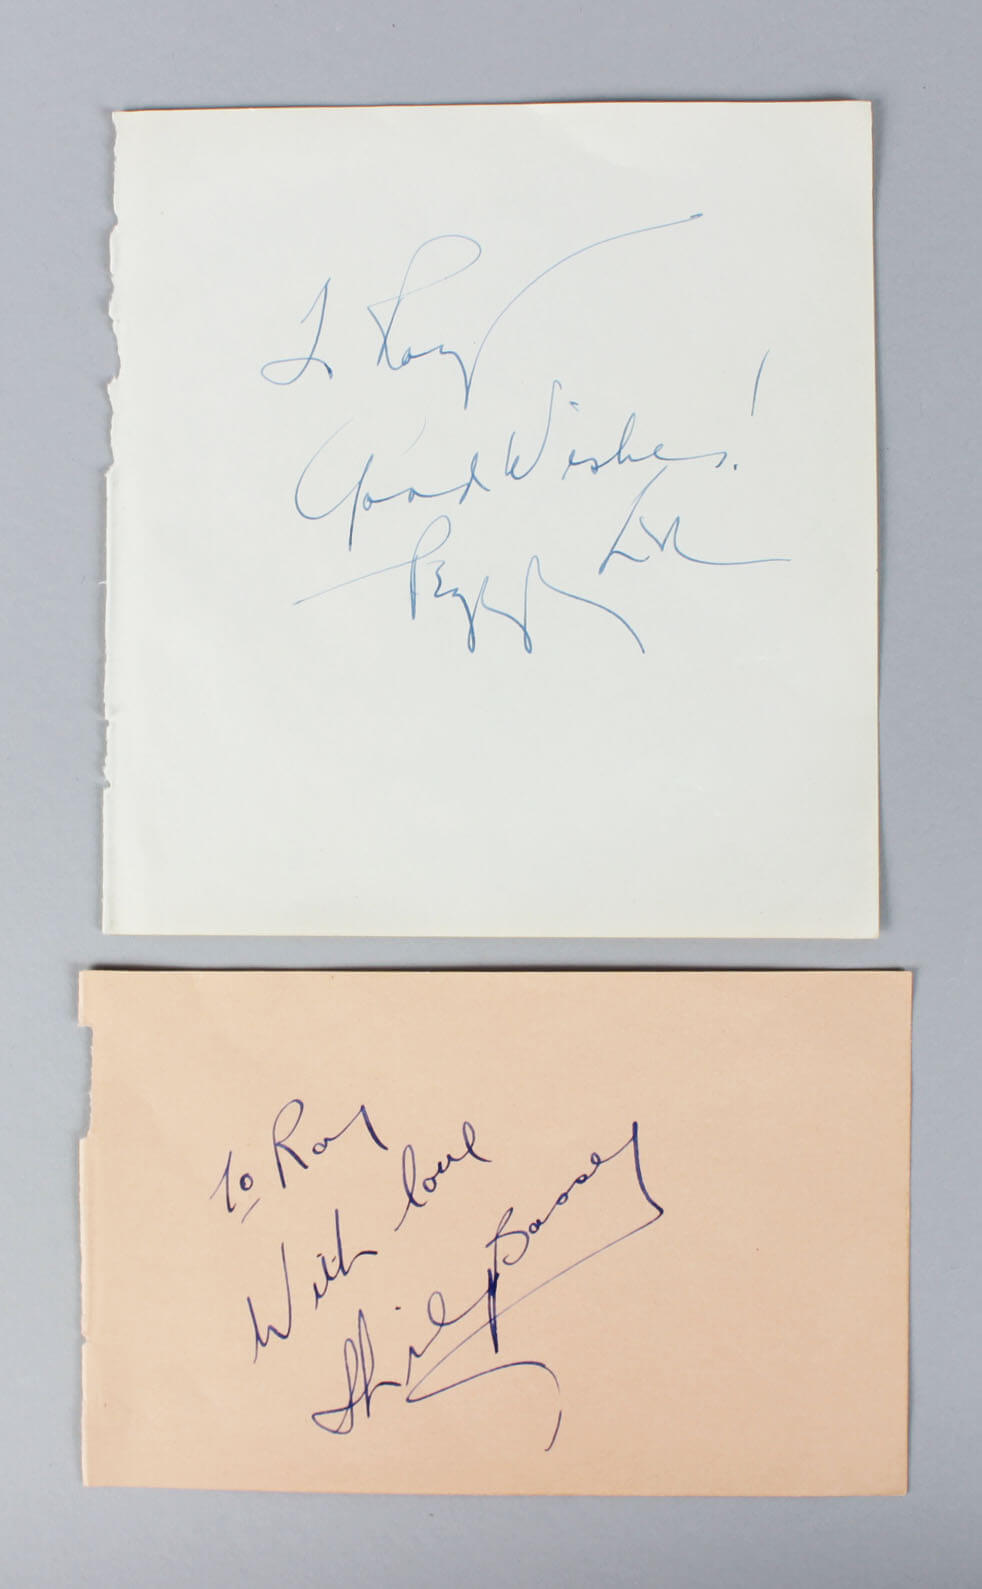 To Ray
Good Wishes!
Peggy Lee
To Ray
With love
Shirley Bassey